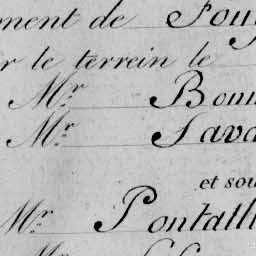 ment de Fouj
r le terrein le
Mr. Bonn
Mr. Sava
et sou
Mr. Pontall